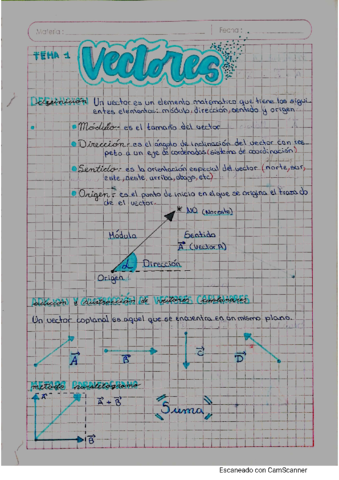 Materia:
Fecha:
TEMA 1
Vectores
Definición Un vector es un elemento matemático que tiene los sigui-
entes elementos: módulo, dirección, sentido y origen.
Módulo: es el tamaño del vector
Dirección: es el ángulo de inclinación del vector con res-
peto a un eje de cordenadas (sistema de coordinación)
Sentido: es la orientación espacial del vector (norte, sur,
este, oeste arriba, abajo, etc)
Origen: es el punto de inicio en el que se origina el trazado
de el vector.
(Noroeste)
Módulo
Sentido
A (Vector A)
α
Dirección
Origen
de vectores coplanares
Un vector coplanal es aquel que se encuentra en un mismo plano.
A
B
C
D
Método Paralelogramo
A
A + B
Suma
B
Escaneado con CamScanner